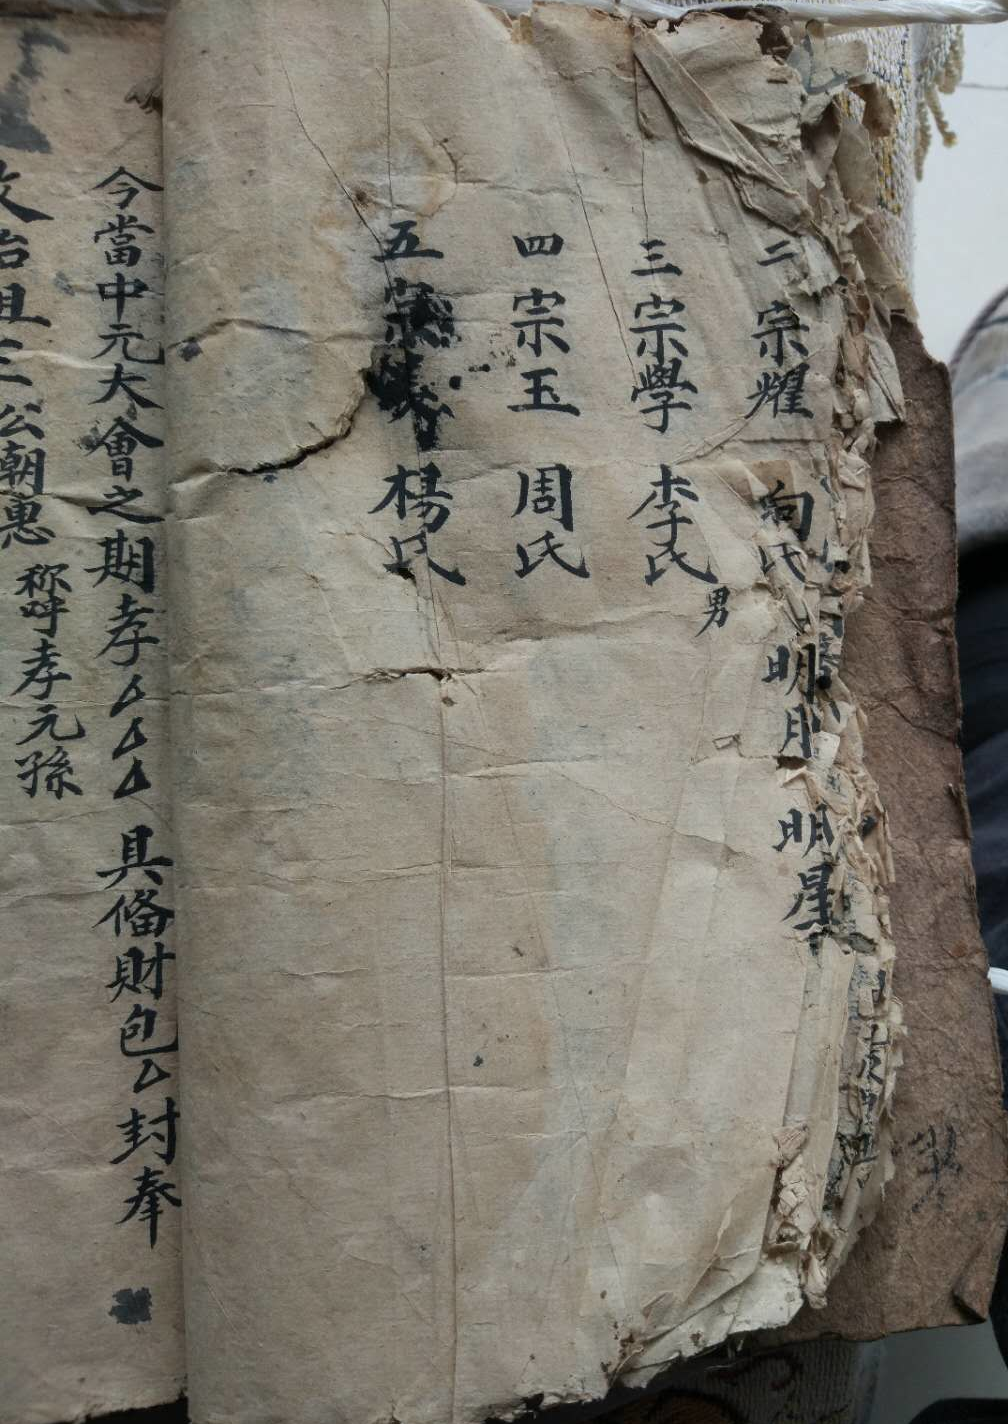 二宗耀 向氏 明月 明星
男
三宗學 李氏
四宗玉 周氏
五宗 楊氏
今當中元大會之期孝厶厶厶 具俻財包厶封奉
故始祖三公朝惠 称呼孝元孫